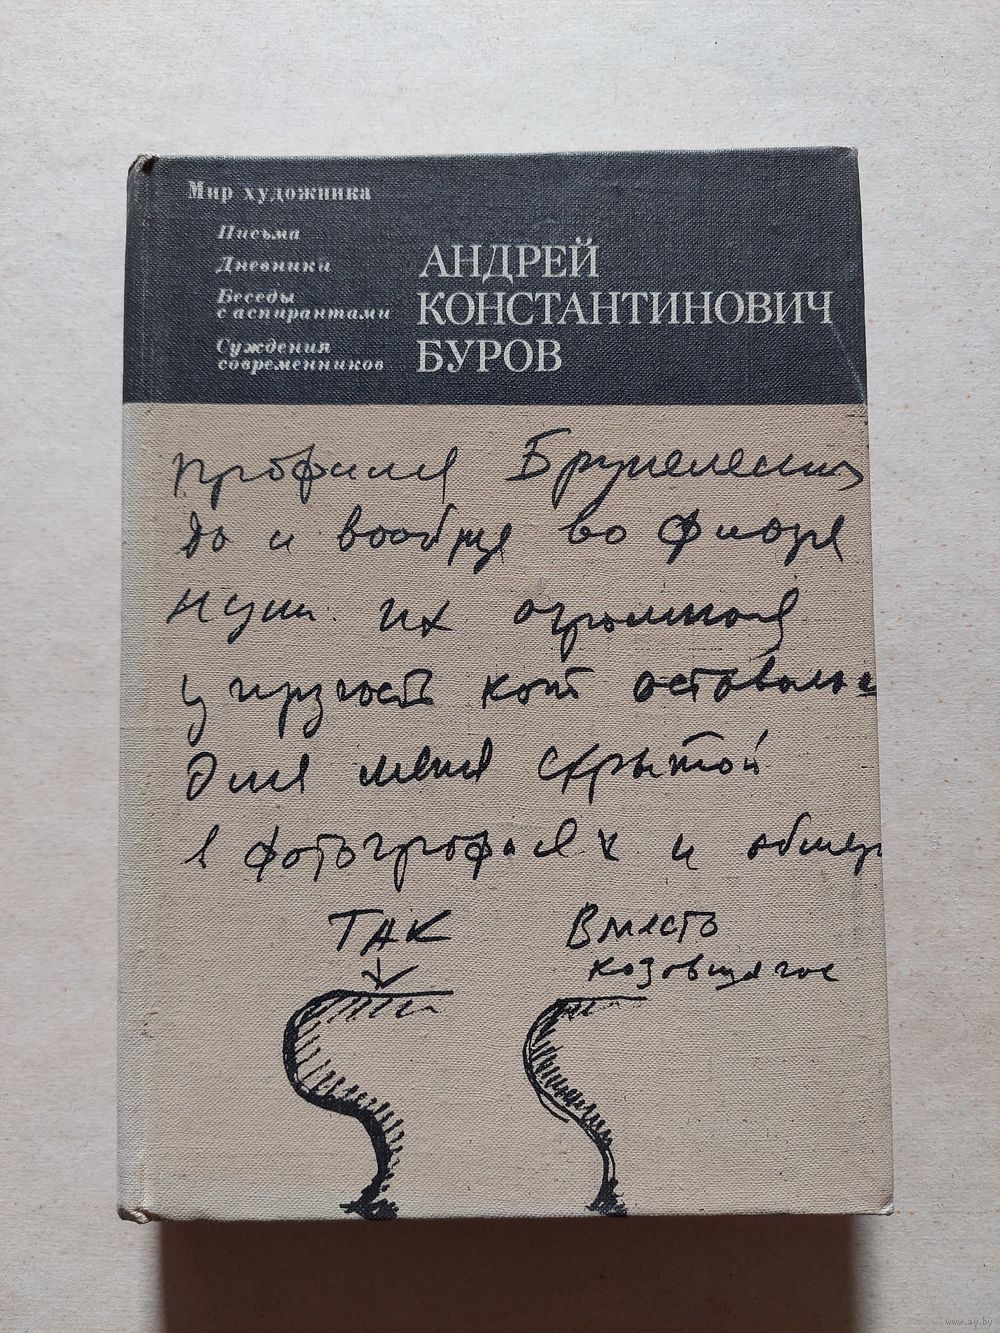 Мир художника
Письма
Дневники
Беседы
с аспирантами
Суждения
современников
АНДРЕЙ
КОНСТАНТИНОВИЧ
БУРОВ
профиля Брунеллески
да и вообще во Флоре
нции. их огромная
упругость кот оставалас
для меня скрытой
в фотографиях и обмер
ТАК
Вместо
казавшегося
www.ay.by